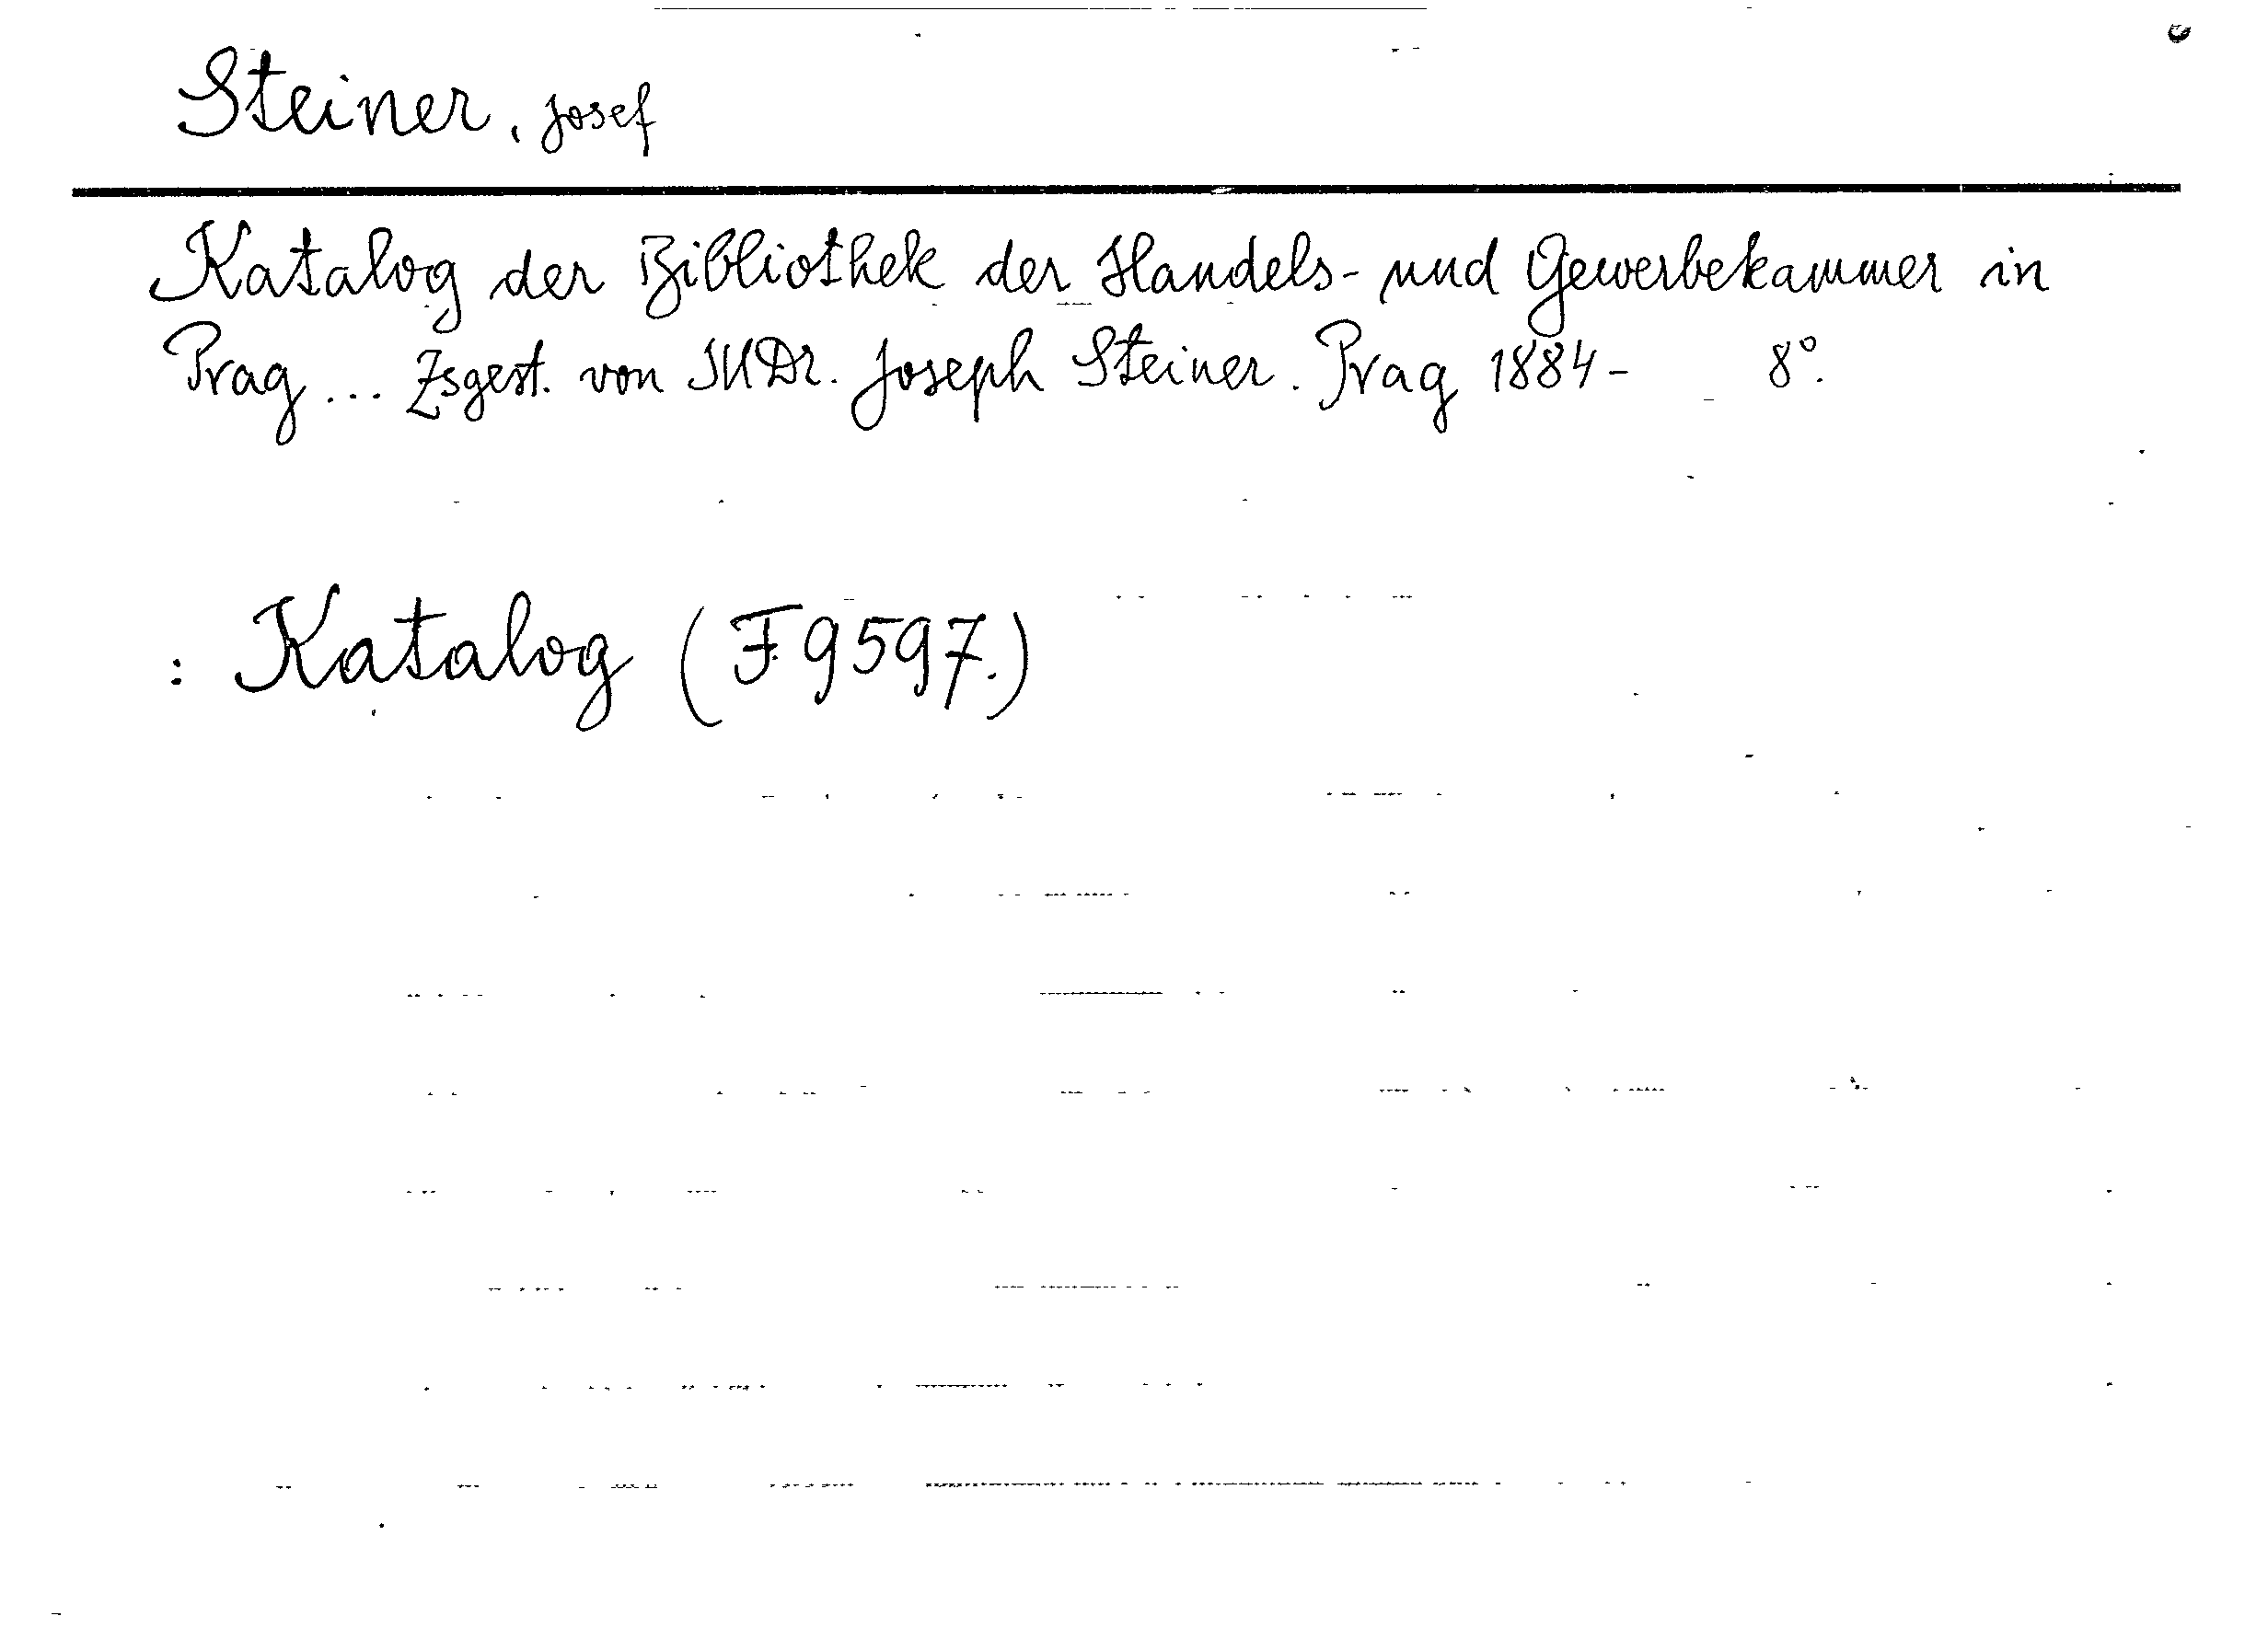 Steiner, Josef
Katalog der Bibliothek der Handels- und Gewerbekammer in
Prag ... Zsgest. von JUDr. Joseph Steiner. Prag 1884- 8°.
: Katalog (F 9597.)